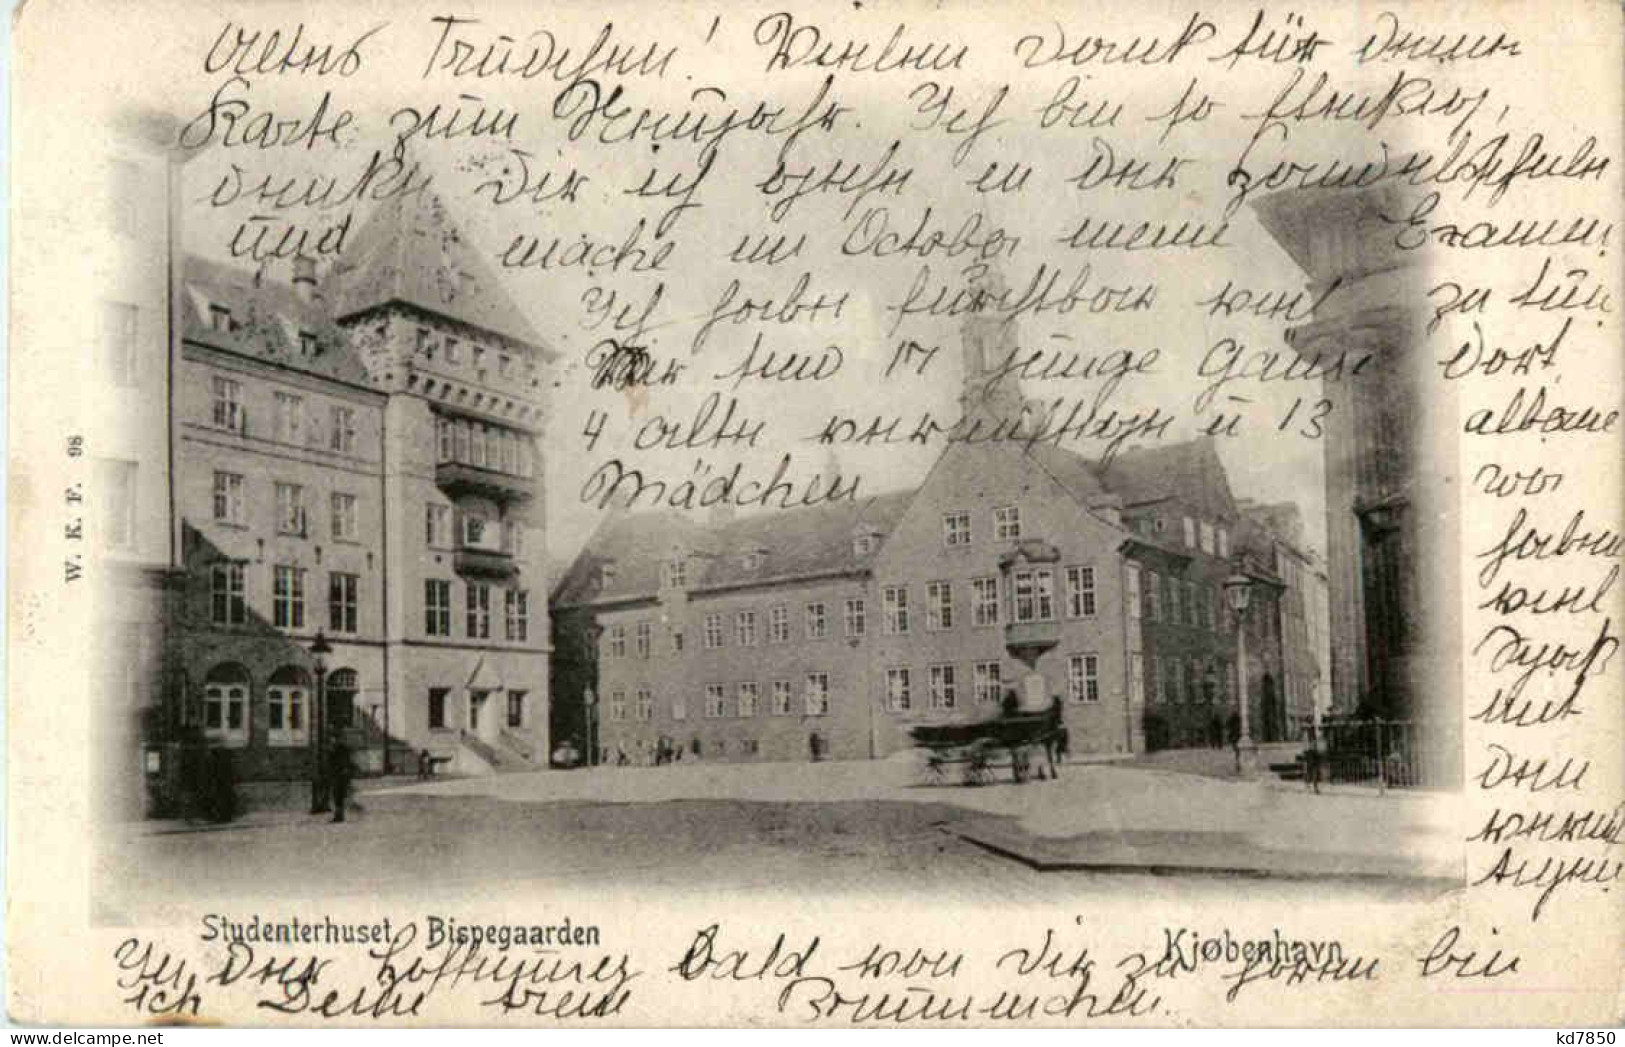 Altes Trudchen! Vielen Dank für Deine
Karte zum Neujahr. Ich bin so fleißig,
denke Dir ich gehe in der Handelsschule
und mache im October mein Examen
Ich habe furchtbar viel zu tun
Wir sind 17 junge Gänse dort
4 alte vernünftige u 13
Mädchen
albane
wo
haben
viel
Spaß
mit
den
Augen
W. K. F. 98
Studenterhuset Bispegaarden
Kjøbenhavn
In der Hoffnung bald von Dir zu hören bin
ich Deine treue
kd7850